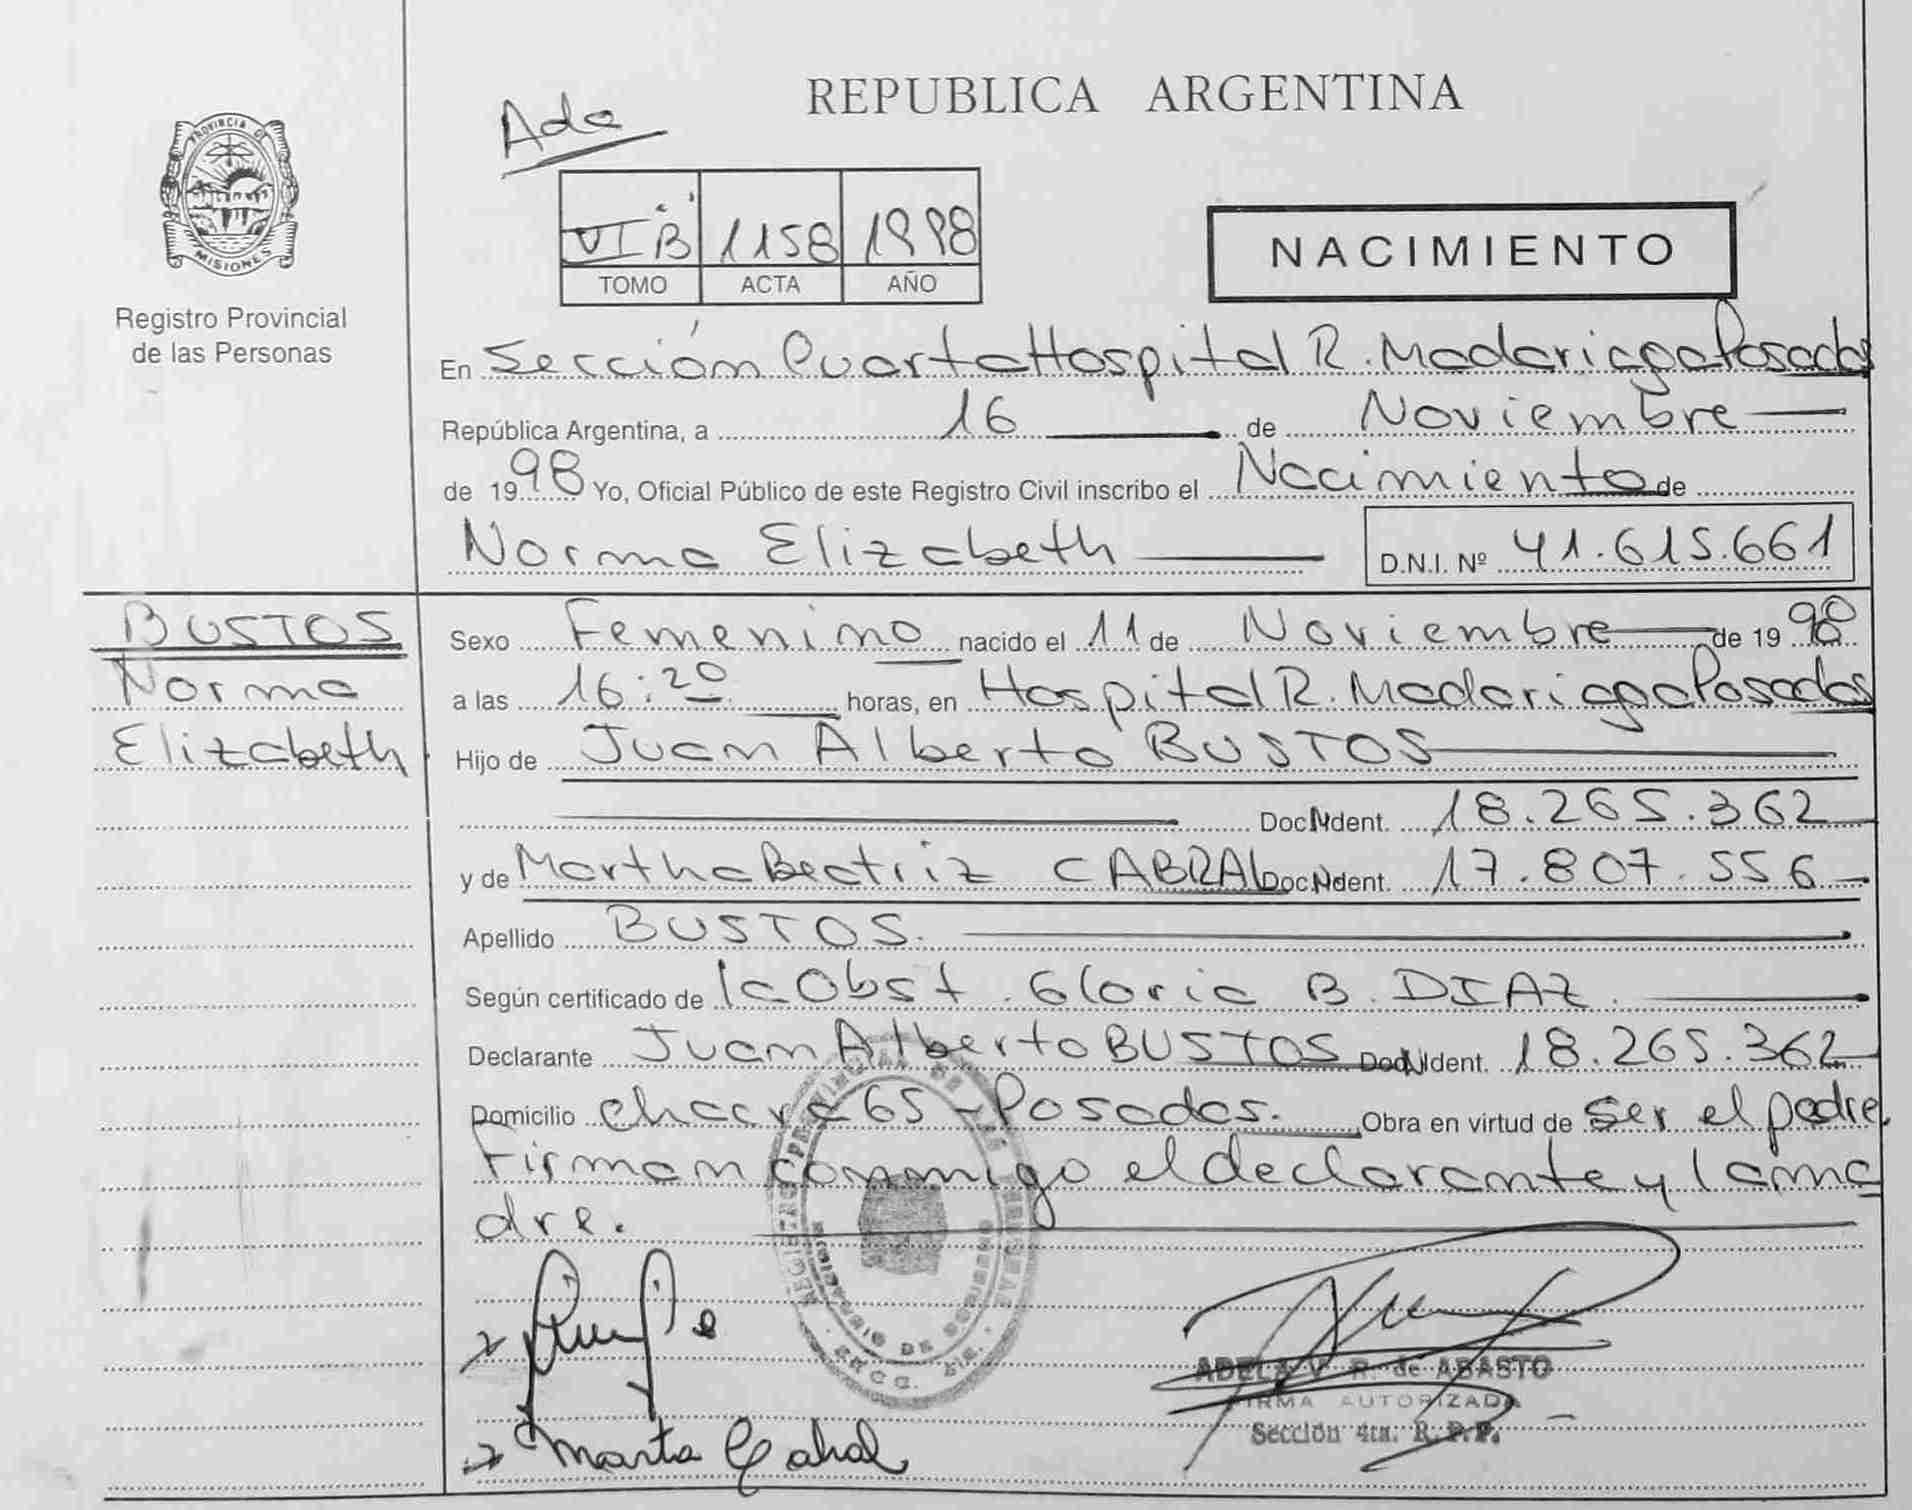 REPUBLICA ARGENTINA
Ada
PROVINCIA DE
MISIONES
Registro Provincial
de las Personas
VI B 1158 1998
TOMO ACTA AÑO
NACIMIENTO
En Sección Cuarta Hospital R. Madariaga Posadas
República Argentina, a 16 de Noviembre
de 1998 Yo, Oficial Público de este Registro Civil inscribo el Nacimiento de
Norma Elizabeth D.N.I. Nº 41.615.661
BUSTOS
Norma
Elizabeth
Sexo Femenino nacido el 11 de Noviembre de 1998
a las 16:20 horas, en Hospital R. Madariaga Posadas
Hijo de Juan Alberto BUSTOS
Doc. N Ident. 18.265.362
y de Martha Beatriz CABRAL Doc. N Ident. 17.807.556
Apellido BUSTOS.
Según certificado de la Obst. Gloria B. DIAZ.
Declarante Juan Alberto BUSTOS Doc. N Ident. 18.265.362
Domicilio Chacra 65 - Posadas. Obra en virtud de ser el padre.
Firman conmigo el declarante y la ma
dre.
REGISTRO PROVINCIAL DE LAS PERSONAS
DE
SECC.
ADELA V. R. de ABASTO
FIRMA AUTORIZADA
Sección 4ta. R. P. P.
Marta Cabral